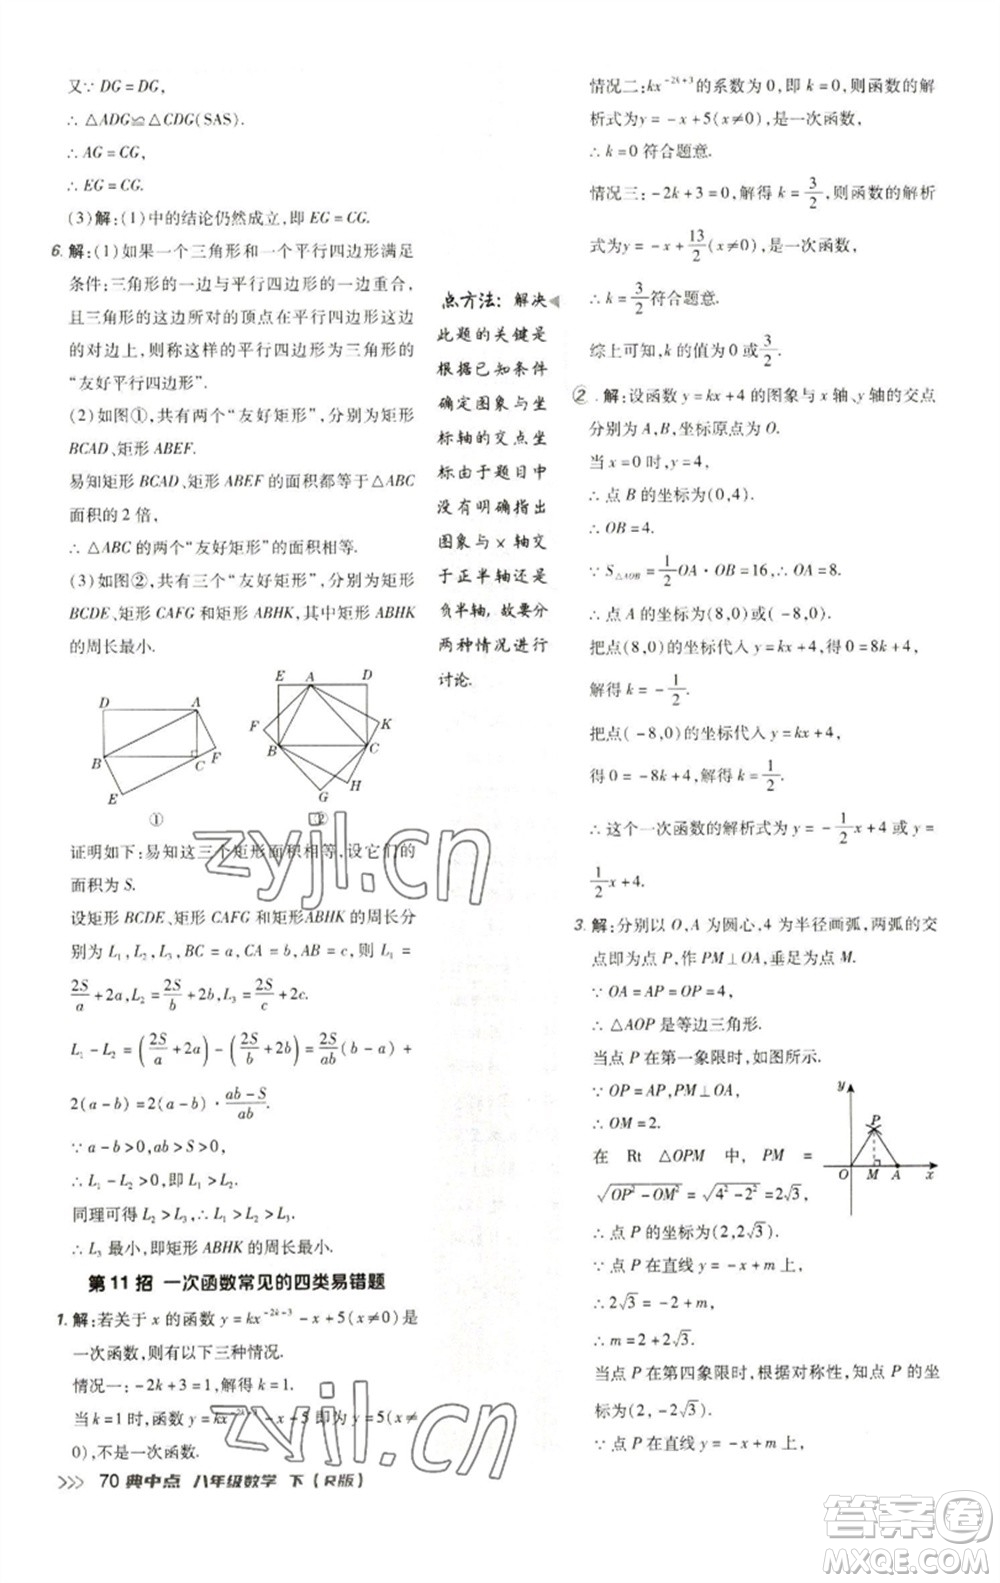 又∵ DG = DG，
∴ △ADG≌△CDG(SAS).
∴ AG = CG，
∴ EG = CG.
(3)解：(1)中的结论仍然成立，即 EG = CG.
6. 解：(1)如果一个三角形和一个平行四边形满足
条件：三角形的一边与平行四边形的一边重合，
且三角形的这边所对的顶点在平行四边形这边
的对边上，则称这样的平行四边形为三角形的
“友好平行四边形”.
(2)如图①，共有两个“友好矩形”，分别为矩形
BCAD、矩形 ABEF.
易知矩形 BCAD、矩形 ABEF 的面积都等于△ABC
面积的 2 倍，
∴ △ABC 的两个“友好矩形”的面积相等.
(3)如图②，共有三个“友好矩形”，分别为矩形
BCDE、矩形 CAFG 和矩形 ABHK，其中矩形 ABHK
的周长最小.
D A B C F E
①
E A D F K B C H G
②
证明如下：易知这三个矩形面积相等，设它们的
面积为 S.
设矩形 BCDE、矩形 CAFG 和矩形ABHK 的周长分
别为 L₁，L₂，L₃，BC = a，CA = b，AB = c，则 L₁ =
2S/a + 2a，L₂ = 2S/b + 2b，L₃ = 2S/c + 2c.
L₁ − L₂ = (2S/a + 2a) − (2S/b + 2b) = 2S/ab (b − a) +
2(a − b) = 2(a − b) · (ab − S)/ab.
∵ a − b > 0，ab > S，
∴ L₁ − L₂ > 0，∴ L₁ > L₂.
同理可得 L₂ > L₃，∴ L₁ > L₂ > L₃.
∴ L₃ 最小，即矩形 ABHK 的周长最小.
第 11 招 一次函数常见的四类易错题
1. 解：若关于 x 的函数 y = kx⁻²ᵏ⁺³ − x + 5(x≠0)是
一次函数，则有以下三种情况.
情况一：−2k + 3 = 1，解得 k = 1.
当 k = 1 时，函数 y = kx⁻²ᵏ⁺³ − x + 5 即为 y = 5(x≠
0)，不是一次函数.
点方法：解决
此题的关键是
根据已知条件
确定图象与坐
标轴的交点坐
标由于题目中
没有明确指出
图象与 x 轴交
于正半轴还是
负半轴，故要分
两种情况进行
讨论.
情况二：kx⁻²ᵏ⁺³的系数为 0，即 k = 0，则函数的解
析式为 y = −x + 5(x≠0)，是一次函数，
∴ k = 0 符合题意.
情况三：−2k + 3 = 0，解得 k = 3/2，则函数的解析
式为 y = −x + 13/2 (x≠0)，是一次函数，
∴ k = 3/2 符合题意.
综上可知，k 的值为 0 或 3/2.
2. 解：设函数 y = kx + 4 的图象与 x 轴、y 轴的交点
分别为 A，B，坐标原点为 O.
当 x = 0 时，y = 4，
∴ 点 B 的坐标为(0，4).
∴ OB = 4.
∵ S△AOB = 1/2 OA · OB = 16，∴ OA = 8.
∴ 点 A 的坐标为(8，0)或(−8，0).
把点(8，0)的坐标代入 y = kx + 4，得 0 = 8k + 4，
解得 k = −1/2.
把点(−8，0)的坐标代入 y = kx + 4，
得 0 = −8k + 4，解得 k = 1/2.
∴ 这个一次函数的解析式为 y = −1/2 x + 4 或 y =
1/2 x + 4.
3. 解：分别以 O，A 为圆心，4 为半径画弧，两弧的交
点即为点 P，作 PM⊥OA，垂足为点 M.
∵ OA = AP = OP = 4，
∴ △AOP 是等边三角形.
当点 P 在第一象限时，如图所示.
∵ OP = AP，PM⊥OA，
∴ OM = 2.
在 Rt △OPM 中，PM =
√(OP² − OM²) = √(4² − 2²) = 2√3，
∴ 点 P 的坐标为(2，2√3).
y P O M A x
∵ 点 P 在直线 y = −x + m 上，
∴ 2√3 = −2 + m，
∴ m = 2 + 2√3.
当点 P 在第四象限时，根据对称性，知点 P 的坐
标为(2，−2√3).
∵ 点 P 在直线 y = −x + m 上，
70 典中点 八年级数学 下（R版）
zyjl.cn
zyjl.cn
答案圈
MXQE.COM